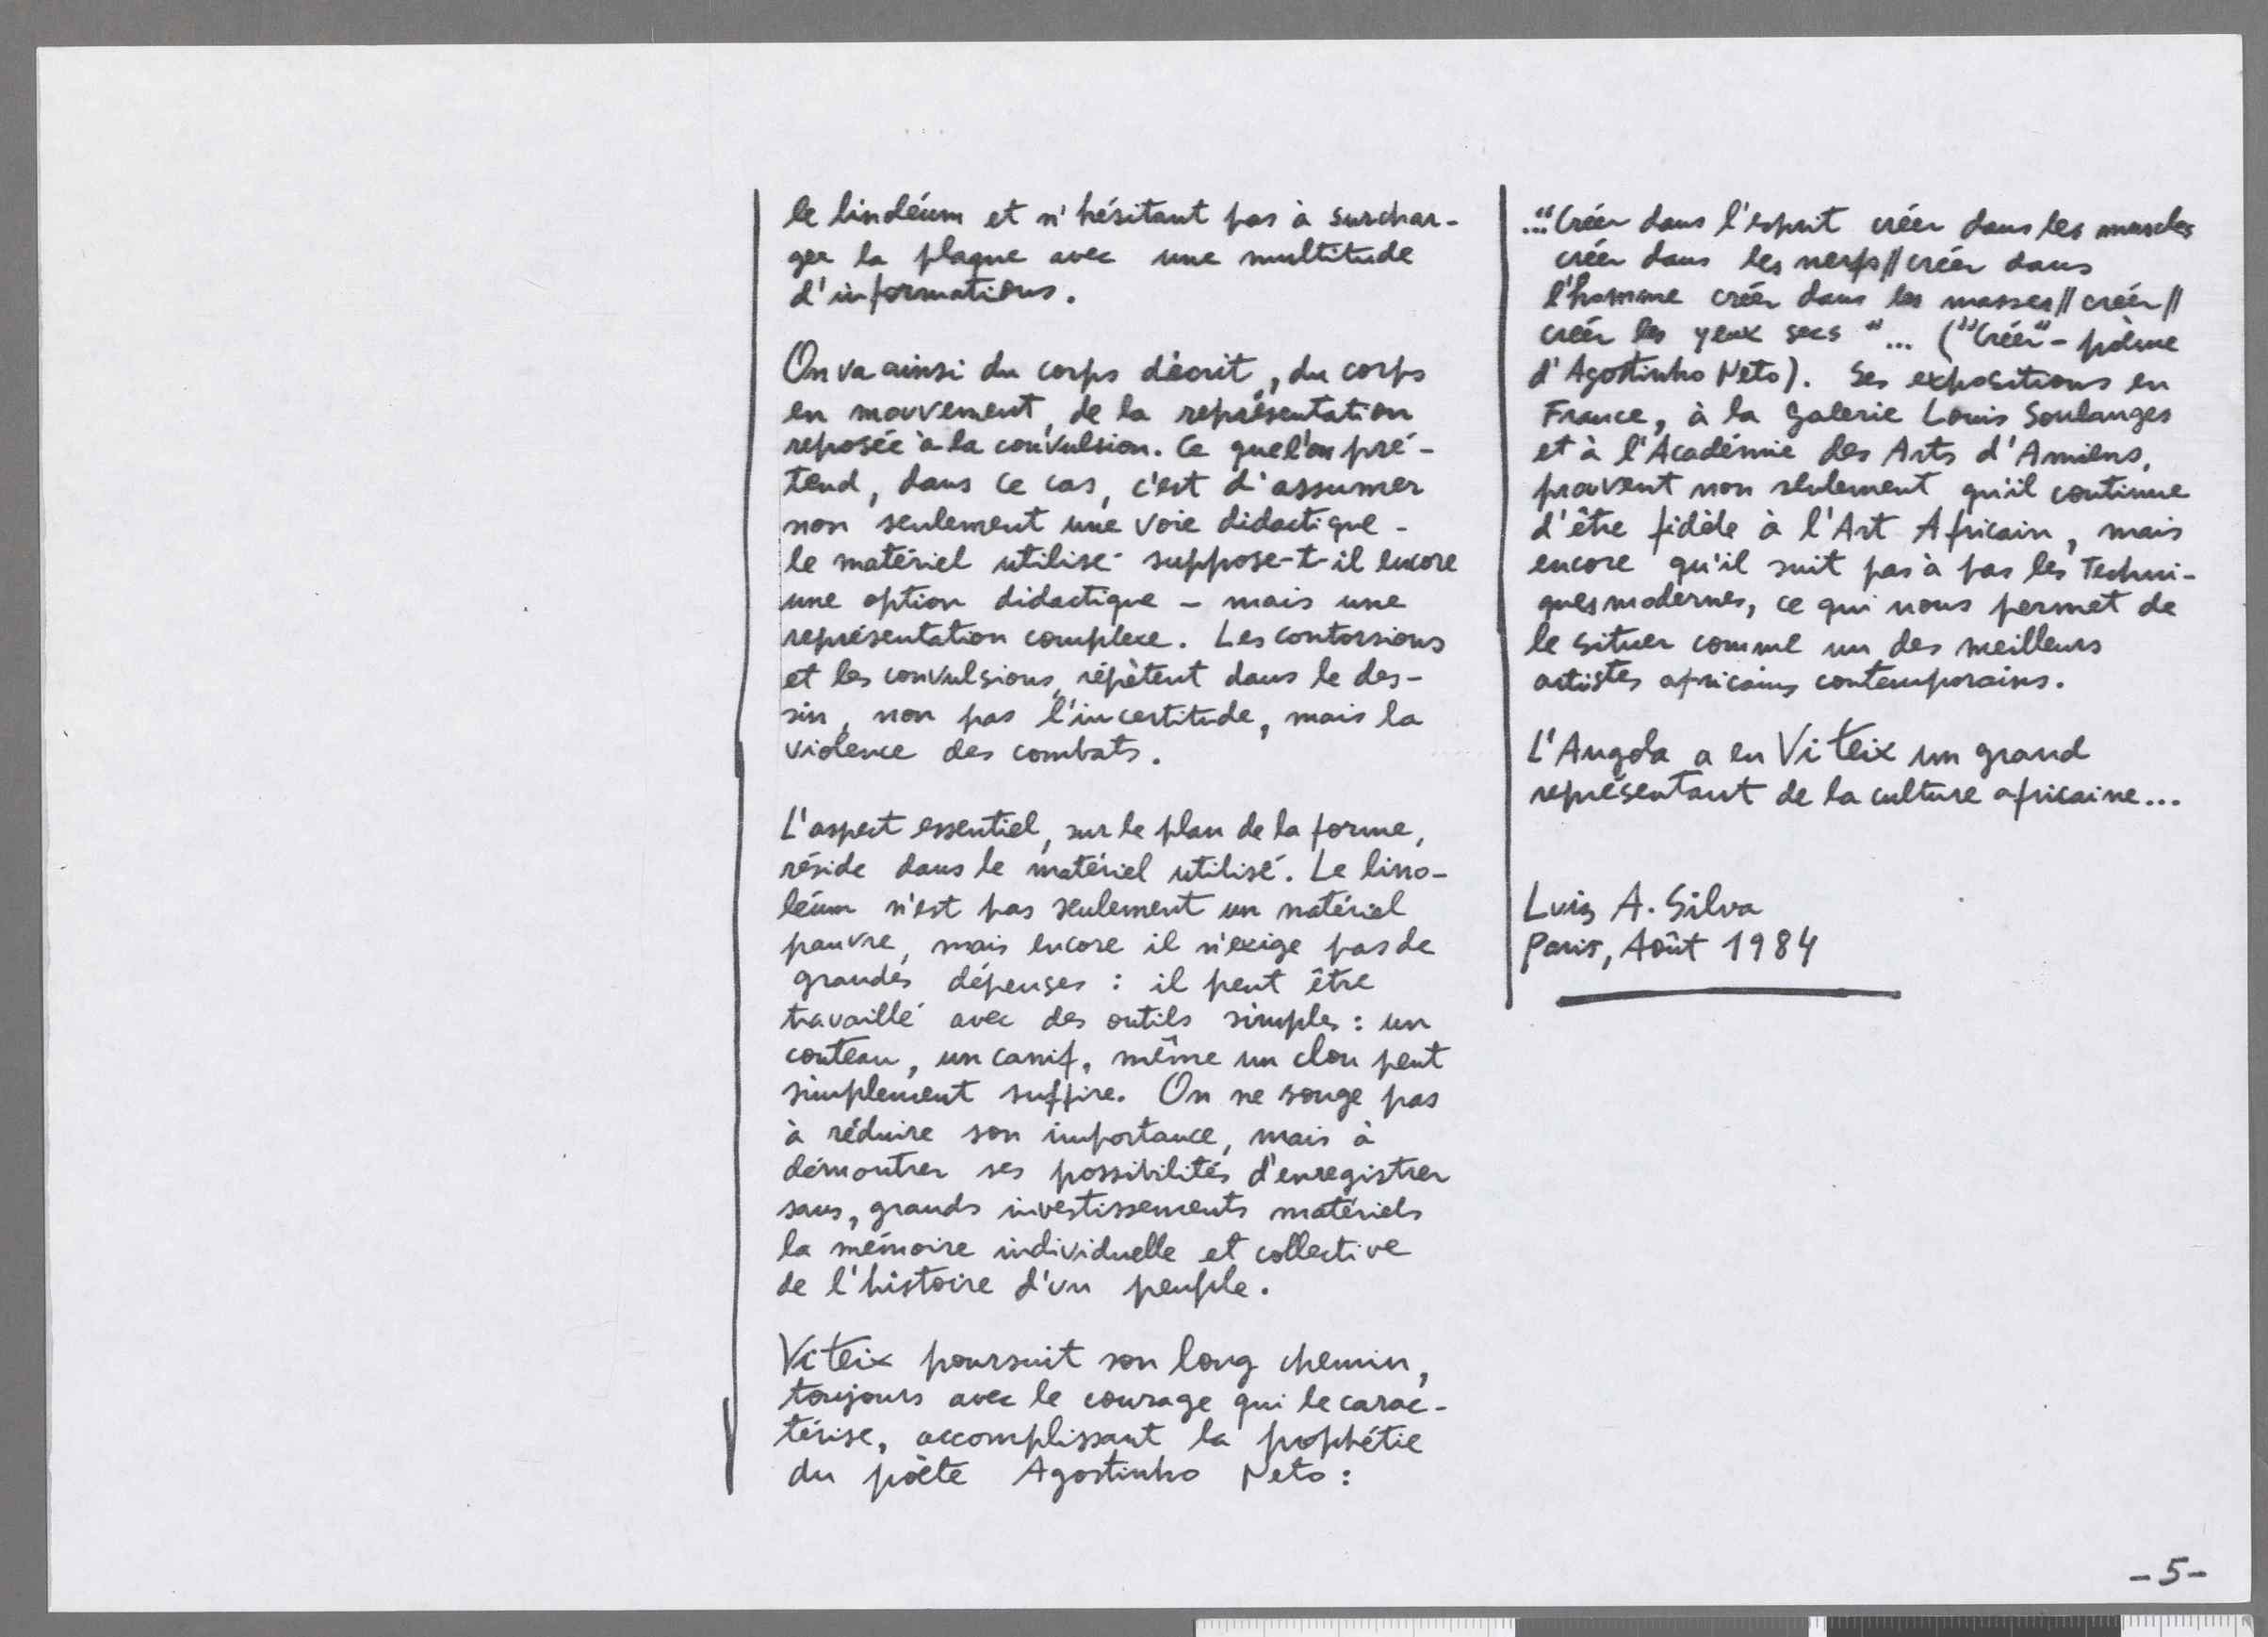 le linoléum et n'hésitant pas à surchar-
ger la plaque avec une multitude
d'informations.
On va ainsi du corps décrit, du corps
en mouvement, de la représentation
reposée à la convulsion. Ce que l'on pré-
tend, dans ce cas, c'est d'assumer
non seulement une voie didactique -
le matériel utilisé suppose-t-il encore
une option didactique - mais une
représentation complexe. Les contorsions
et les convulsions, répètent dans le des-
sin, non pas l'incertitude, mais la
violence des combats.
L'aspect essentiel, sur le plan de la forme,
réside dans le matériel utilisé. Le lino-
léum n'est pas seulement un matériel
pauvre, mais encore il n'exige pas de
grandes dépenses : il peut être
travaillé avec des outils simples : un
couteau, un canif, même un clou peut
simplement suffire. On ne songe pas
à réduire son importance, mais à
démontrer ses possibilités d'enregistrer
sans, grands investissements matériels
la mémoire individuelle et collective
de l'histoire d'un peuple.
Viteix poursuit son long chemin,
toujours avec le courage qui le carac-
térise, accomplissant la prophétie
du pòète Agostinho Neto :
..."Créer dans l'esprit créer dans les muscles
créer dans les nerfs//créer dans
l'homme créer dans les masses//créer//
créer les yeux secs"... ("Créer"- pòème
d'Agostinho Neto). Ses expositions en
France, à la Galerie Louis Soulanges
et à l'Académie des Arts d'Amiens,
prouvent non seulement qu'il continue
d'être fidèle à l'Art Africain, mais
encore qu'il suit pas à pas les Techni-
ques modernes, ce qui nous permet de
le situer comme un des meilleurs
artistes africains contemporains.
L'Angola a en Viteix un grand
représentant de la culture africaine...
Luis A. Silva
Paris, Août 1984
-5-